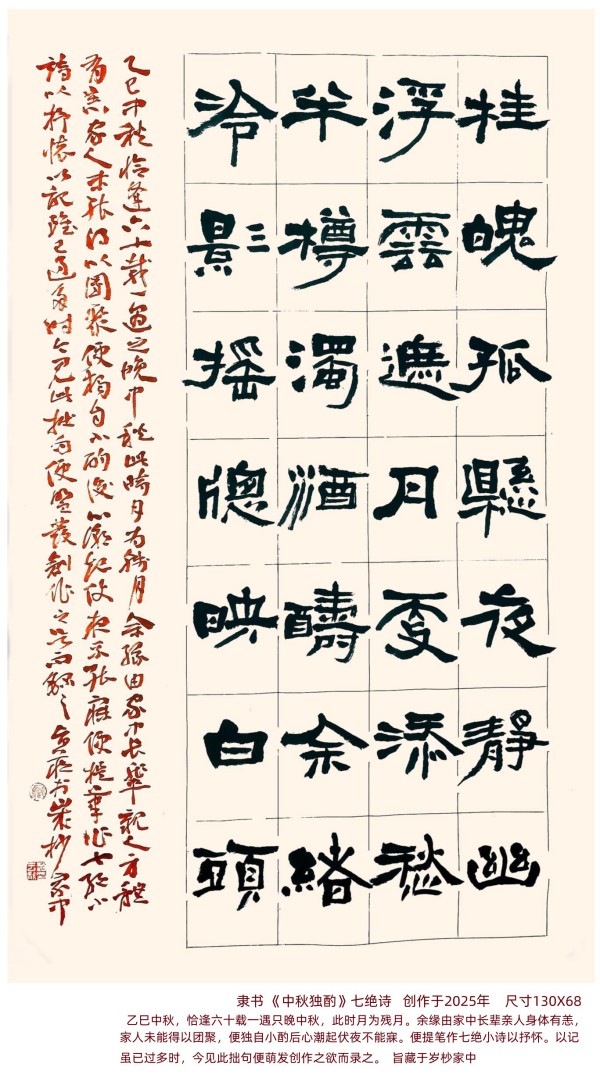 桂魄孤懸夜靜幽
浮雲遮月更添愁
半樽濁酒醻余緒
冷影摇牕映白頭
乙巳中秋恰逢六十載一遇之晚中秋此時月为殘月余缘由家中长輩親人身體
有恙家人未能得以團聚便獨自小酌後心潮起伏夜不能寐便提筆作七絕小
詩以抒懷以記雖已過多時今見此拙句便萌發創作之欲而錄之旨藏于歲杪家中
隶书《中秋独酌》七绝诗 创作于2025年 尺寸130X68
乙巳中秋，恰逢六十载一遇只晚中秋，此时月为残月。余缘由家中长辈亲人身体有恙，
家人未能得以团聚，便独自小酌后心潮起伏夜不能寐。便提笔作七绝小诗以抒怀。以记
虽已过多时，今见此拙句便萌发创作之欲而录之。 旨藏于岁杪家中